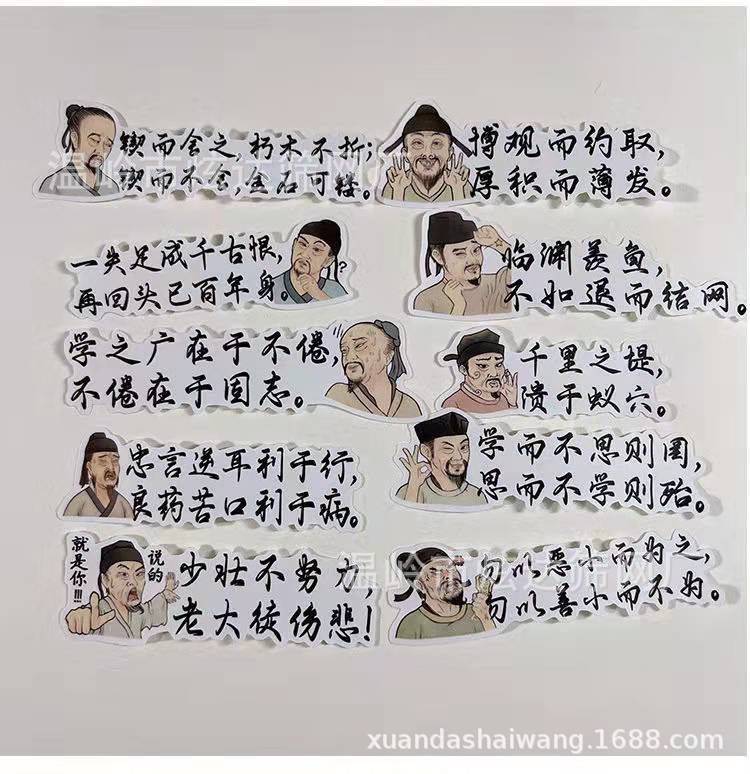 锲而舍之,朽木不折;
锲而不舍,金石可镂。
博观而约取,
厚积而薄发。
一失足成千古恨,
再回头已百年身。
?
临渊羡鱼,
不如退而结网。
学之广在于不倦,
不倦在于固志。
千里之堤,
溃于蚁穴。
忠言逆耳利于行,
良药苦口利于病。
学而不思则罔,
思而不学则殆。
就是你!!!
说的
少壮不努力,
老大徒伤悲!
勿以恶小而为之,
勿以善小而不为。
温岭市炫达筛网厂
温岭市炫达筛网厂
xuandashaiwang.1688.com